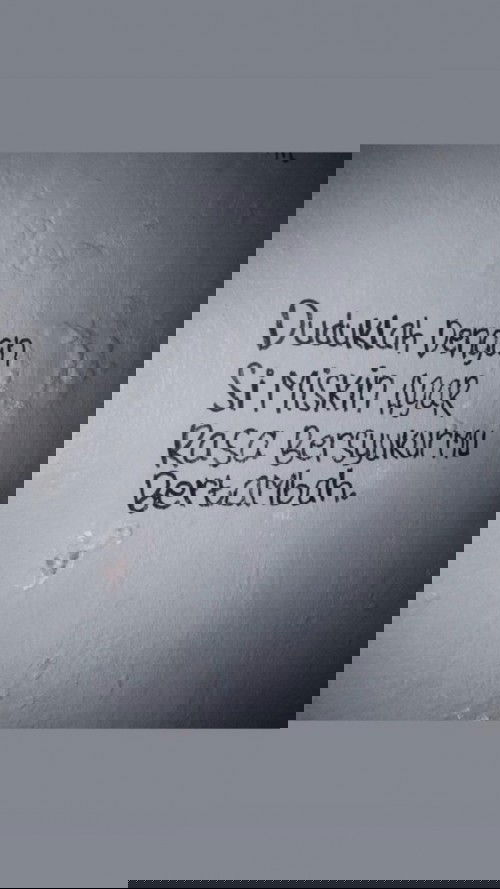 Duduklah Dengan
Si Miskin Agar
Rasa Bersyukurmu
Bertambah.